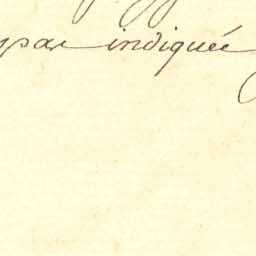 pas indiquée